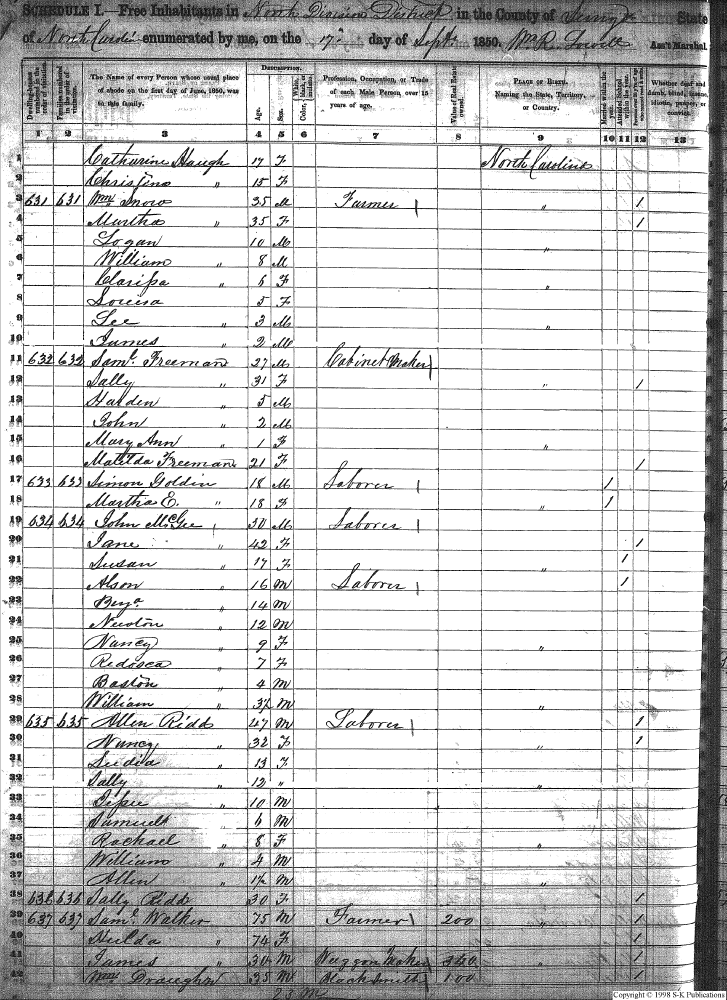 SCHEDULE I.—Free Inhabitants in North Division District in the County of Surry State
of North Carolina enumerated by me, on the 17th day of Sept 1850. Wm R. Lovell Ass't Marshal
Dwelling-houses numbered in the order of visitation.
Families numbered in the order of visitation.
The Name of every Person whose usual place of abode on the first day of June, 1850, was in this family.
DESCRIPTION.
Age.
Sex.
Color, White, black, or mulatto.
Profession, Occupation, or Trade of each Male Person over 15 years of age.
Value of Real Estate owned.
PLACE OF BIRTH. Naming the State, Territory, or Country.
Married within the year.
Attended School within the year.
Whether deaf and dumb, blind, insane, idiotic, pauper, or convict.
1 2 3 4 5 6 7 8 9 10 11 12 13
1 Catharine Haugh 17 F North Carolina
2 Christina " 15 F
3 631 631 Wm Snow 35 M Farmer 1 " 1
4 Martha " 35 F 1
5 Logan 10 M "
6 William " 8 M
7 Clarissa " 6 F "
8 Louisa 5 F
9 Lee " 3 M "
10 James " 2 M
11 632 632 Saml. Freeman 27 M Cabinet Maker 1
12 Sally " 31 F " 1
13 Harden " 5 M
14 John " 2 M
15 Mary Ann " 1 F "
16 Matilda Freeman 21 F 1
17 633 633 Simon Goldin 18 M Laborer 1 1
18 Martha E. " 18 F " 1
19 634 634 John McGee 30 M Laborer 1
20 Jane " 42 F 1
21 Susan " 17 F " 1
22 Alson " 16 M Laborer 1 1
23 " 14 M
24 Newton " 12 M
25 Nancy " 9 F "
26 " 7 F
27 Baston " 4 M
28 William "
29 635 635 Allen Ridd 47 M Laborer 1 1
30 Nancy " 32 F " 1
31 " 13 F
32 Sally 12 " "
33 " 10 M
34 " 6 M
35 Rachael " 8 F "
36 William " 4 M
37 Allen " M "
38 636 636 Sally Ridd 30 F 1
39 637 637 Saml. Walker 75 M Farmer 1 200 " 1
40 Hulda " 74 F 1
41 James " 30 M Waggon Maker " 1
42 Wm 35 M Black Smith 100 1
Copyright © 1998 S-K Publications